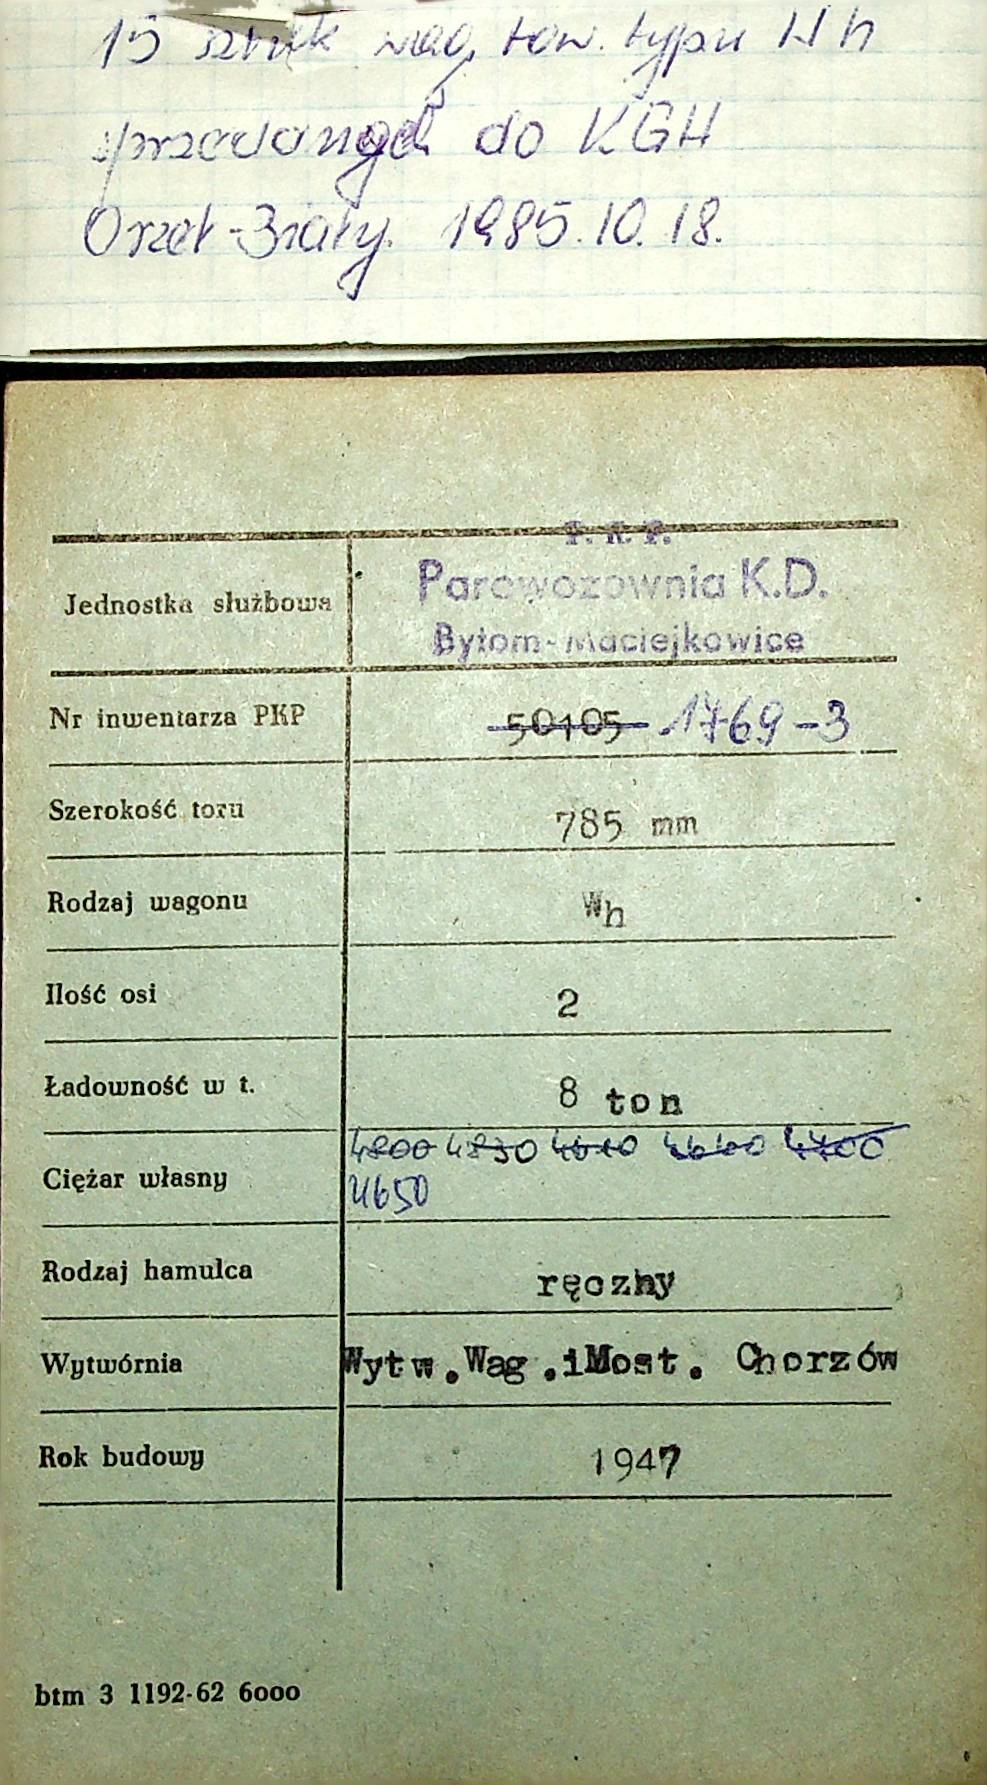 15 sztuk wag. tow. typu Wh
sprzedanych do KGH
Orzeł-Biały. 1985.10.18.
P. K. P.
Jednostka służbowa Parowozownia K.D.
Bytom-Maciejkowice
Nr inwentarza PKP 50105 1769-3
Szerokość toru 785 mm
Rodzaj wagonu Wh
Ilość osi 2
Ładowność w t. 8 ton
4800 4830 4610 4640 4700
Ciężar własny 4650
Rodzaj hamulca ręczny
Wytwórnia Wytw.Wag.iMost. Chorzów
Rok budowy 1947
btm 3 1192-62 6000